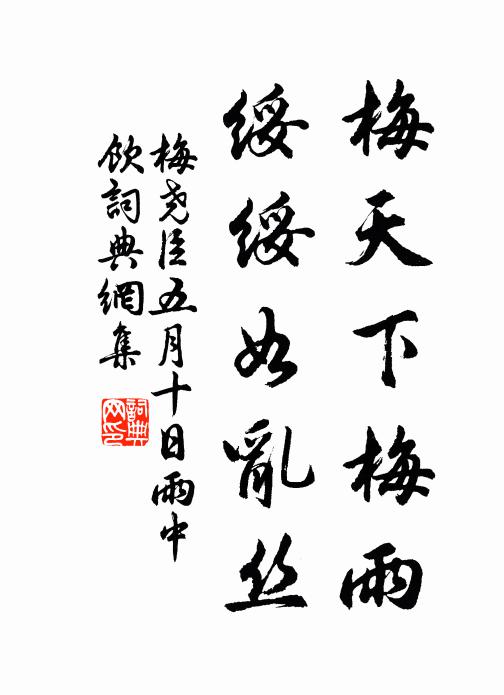 梅天下梅雨
綏綏如亂丝
梅尧臣五月十日雨中
飲詞典網集
詞典
网印